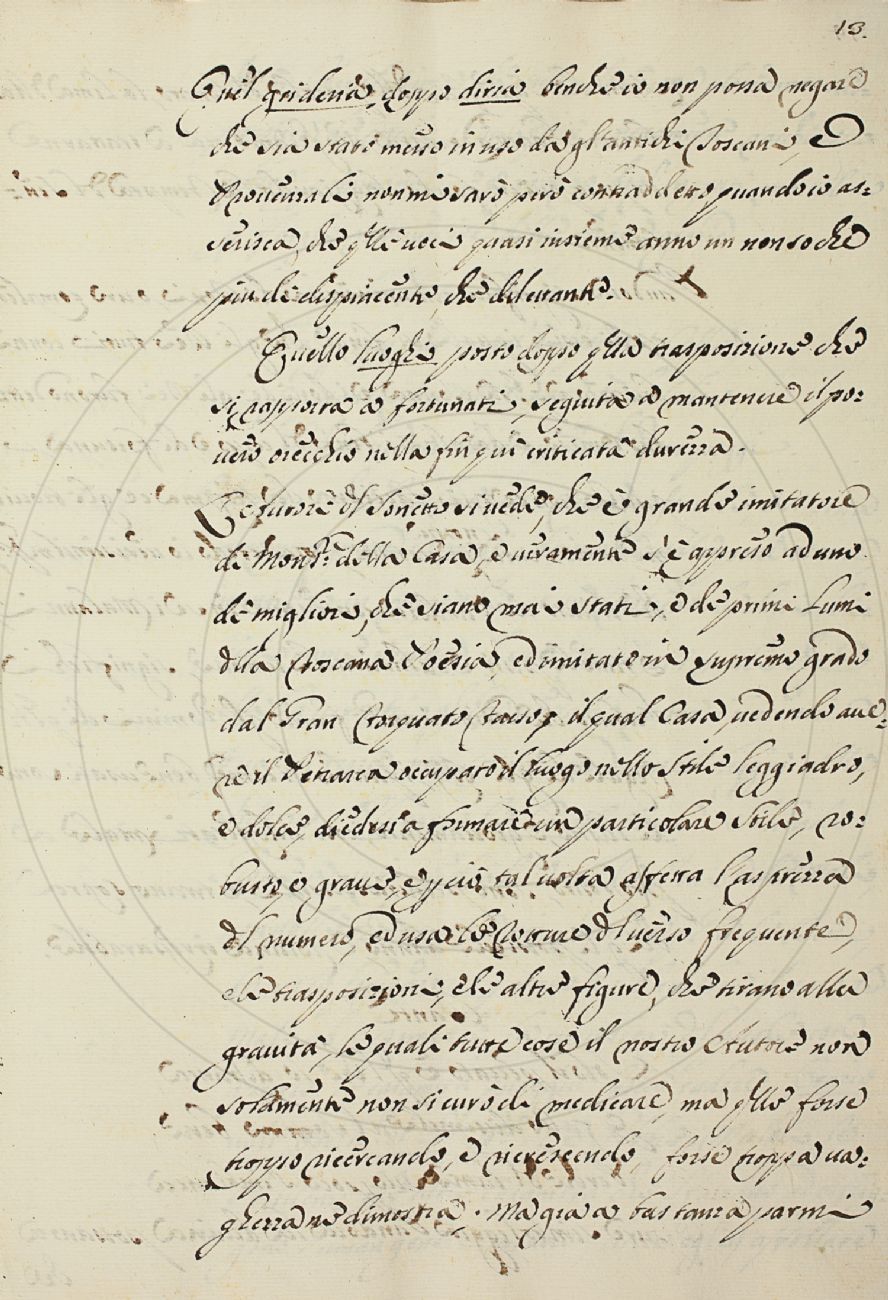 13.
Quel griderià, doppo dirià benche io non possa negare
che sia stato messo in uso da gl'antichi Toscani, e
Provenzali non mi sarò però contraddetto quando io as=
serisca, che q̃lle voci quasi insieme anno un non so che
piu di dispiacente, che dilettante.
Quello luoghi posto doppo q̃lla trasposizione che
si rapporta à fortunati, seguita à mantenere il po=
vero orecchio nella fin qui criticata durezza.
L'Autore d̃l Sonetto si vede, che è grande imitatore
di Mons.r della Casa, e veramente s'è appreso ad uno
de migliori, che siano mai stati, e de primi Lumi
d̃lla Toscana Poesia, ed imitato in supremo grado
dal Gran Torquato Tasso, il qual Casa, vedendo ave=
re il Petrarca occupato il luogo nello Stile leggiadro,
e dolce, diedesi a formare un particolare Stile, ro=
busto, e grave, e p̃ciò tal volta affetta l'asprezza
d̃l numero, ed usa le rotture d̃l verso frequente,
e le trasposizioni, e le altre figure, che tirano alla
gravità, le quali tutte cose il nostro Autore non
solamente non si curò di medicare, ma q̃lle forse
troppo ricercando, e ricrescendo, forse troppa va=
ghezza ne dimostra. Ma già a bastanza parmi